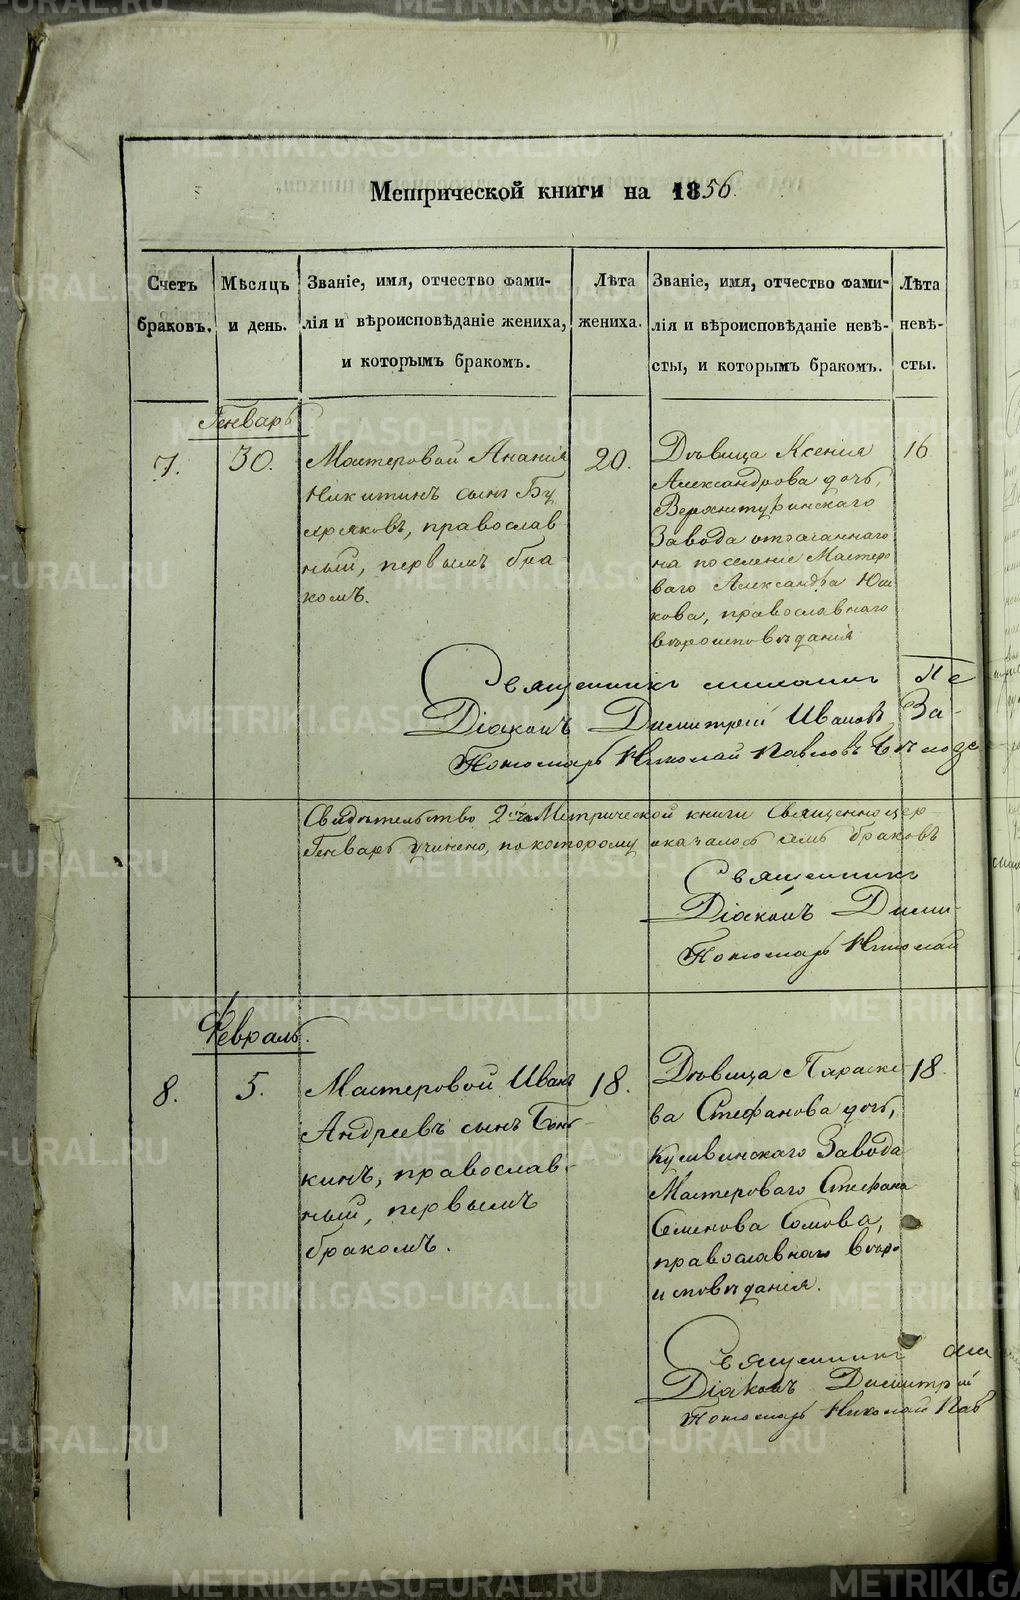 Метрической книги на 1856
Счетъ браковъ.
Мѣсяцъ и день.
Званіе, имя, отчество фами-
лія и вѣроисповѣданіе жениха,
и которымъ бракомъ.
Лѣта жениха.
Званіе, имя, отчество фами-
лія и вѣроисповѣданіе невѣ-
сты, и которымъ бракомъ.
Лѣта невѣ-
сты.
Генварь
7.
30.
Мастеровой Ананія
Никитинъ сынъ Бу
, православ
ный, первымъ бра
комъ.
20.
Дѣвица Ксенія
Александрова дочь,
Верхнетуринскаго
Завода отосланнаго
на поселеніе Мастеро
ваго Александра Юш
кова, православнаго
вѣроисповѣданія
16
Священникъ
Діаконъ Димитрій Ивановъ За-
Пономарь Николай Павловъ
Свидѣтельство Метрической книги Священноцер
Генварь учинено, по которому оказалось семь браковъ
Священникъ
Діаконъ Дими-
Пономарь Николай
Февраль.
8.
5.
Мастеровой Иванъ
Андреевъ сынъ
кинъ, православ-
ный, первымъ
бракомъ.
18.
Дѣвица Параске
ва Стефанова дочь,
Кушвинскаго Завода
Мастероваго Стефана
Семенова Сомова,
православнаго вѣро-
исповѣданія.
18.
Священникъ
Діаконъ Димитрій
Пономарь Николай Пав
METRIKI.GASO-URAL.RU